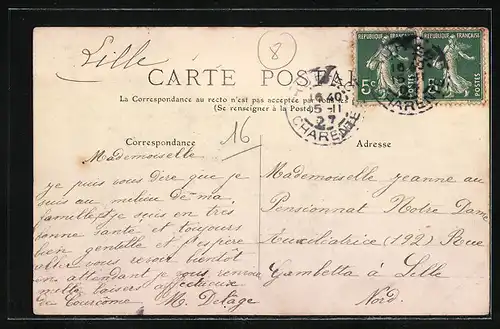 Lille
8
CARTE POSTALE
La Correspondance au recto n'est pas acceptée par tous les
(Se renseigner à la Poste)
RÉPUBLIQUE FRANÇAISE
RÉPUBLIQUE FRANÇAISE
5
15-11
CHARENTE
CHARENTE
16
Correspondance
Adresse
Mademoiselle
je puis vous dire que je
suis au milieu de ma
famille, je suis en très
bonne santé et toujours
bien gentille et j'espère
aller vous revoir bientôt
en attendant je vous renvoie
mille baisers affectueux
M. Delage
Mademoiselle jeanne au
Pensionnat Notre Dame
Auxiliatrice (192) Rue
Gambetta à Lille
Nord.